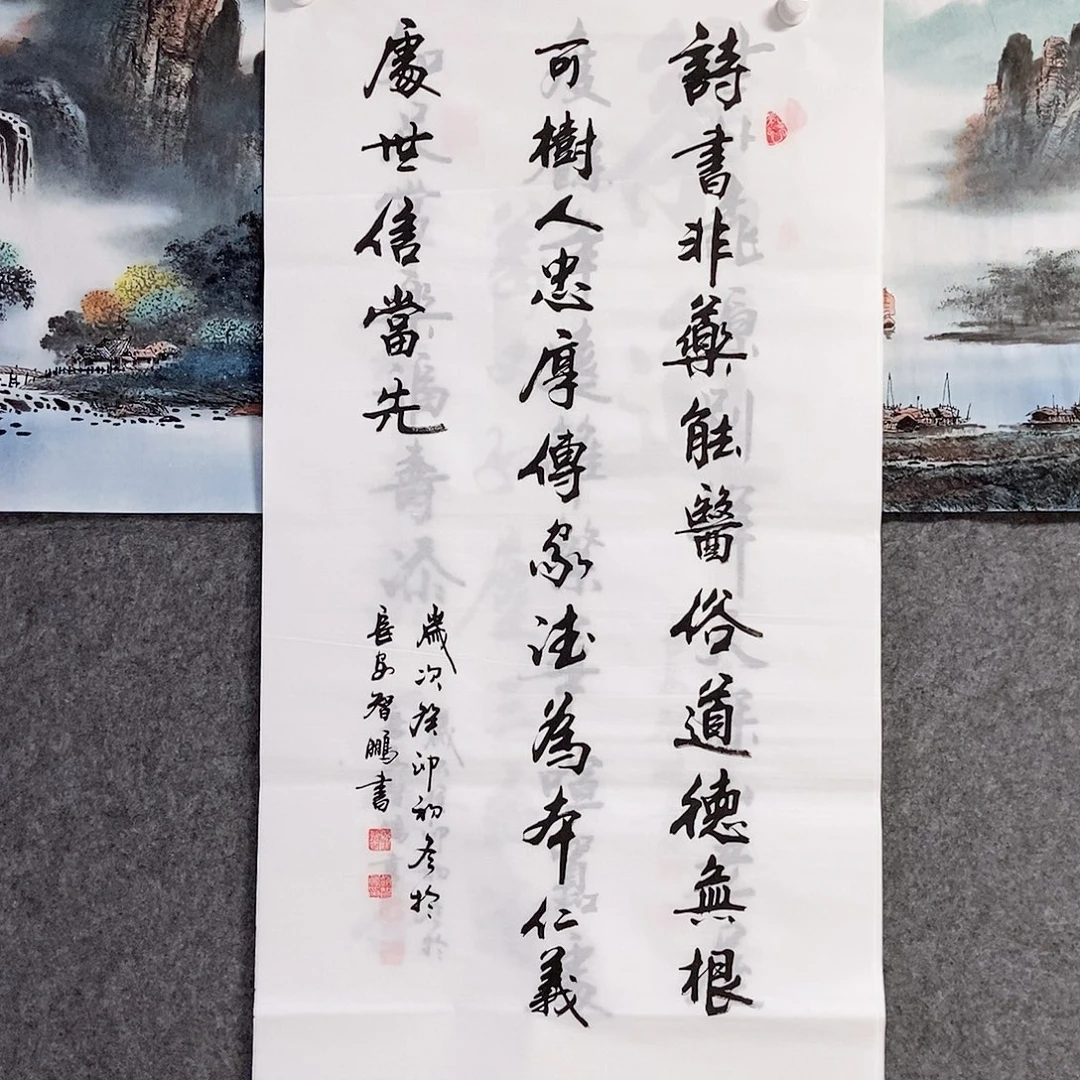 詩書非藥能醫俗道德無根
可樹人忠厚傳家法為本仁義
處世信當先
歲次癸卯初冬於
長安智鵬書